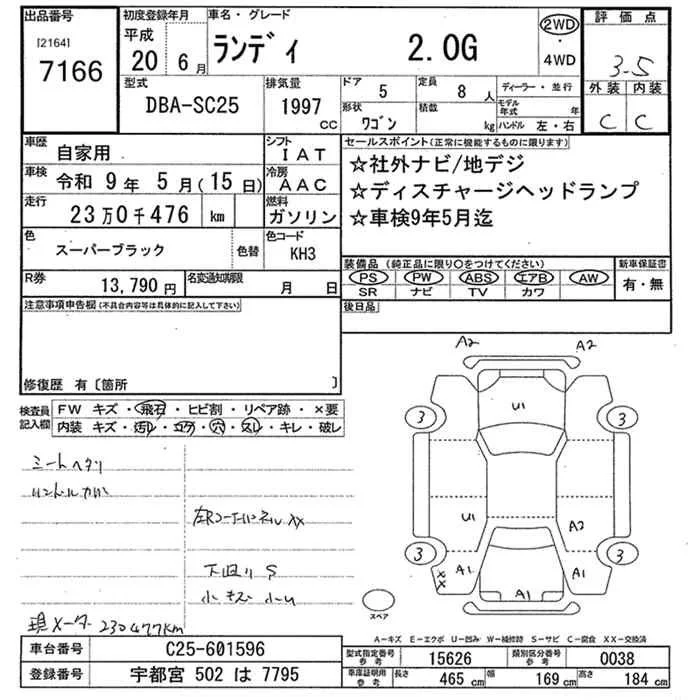 出品番号 初度登録年月 車名・グレード 評価点
[2164] 7166 平成 20 6月 ランディ 2.0G 2WD・4WD 3-5
型式 排気量 ドア 5 定員 8人 ディーラー・並行 外装 内装
DBA-SC25 1997 CC 形状 ワゴン 積載 kg モデル年式 年 ハンドル 左・右 C C
車歴 自家用 シフト IAT セールスポイント(正常に機能するものに限ります)
車検 令和 9年 5月(15日) 冷房 AAC ☆社外ナビ/地デジ
☆ディスチャージヘッドランプ
走行 23万0千476 km 燃料 ガソリン ☆車検9年5月迄
色 スーパーブラック 色替 色コード KH3
装備品(純正品に限り○をつけてください) 新車保証書
R券 13,790円 名変通知期限 月 日 PS PW ABS エアB AW 有・無
SR ナビ TV カワ
注意事項申告欄(不具合内容等は具体的に記入して下さい) 後日品
修復歴 有〔箇所 〕
検査員記入欄 FW キズ・飛石・ヒビ割・リペア跡・×要
内装 キズ・汚レ・コゲ・穴・スレ・キレ・破レ
A2 A2
U1
3 3
U1 A2
3 3
XX A1 A1 A1
シートヘタリ
下回りS
小キズ 小U
現メーター 230477km
スペア
A−キズ E−エクボ U−凹み W−補修跡 S−サビ C−腐食 XX−交換済
車台番号 C25-601596 型式指定番号 参考 15626 類別区分番号 参考 0038
登録番号 宇都宮 502 は 7795 車庫証明用 参考 長さ 465 cm 幅 169 cm 高さ 184 cm